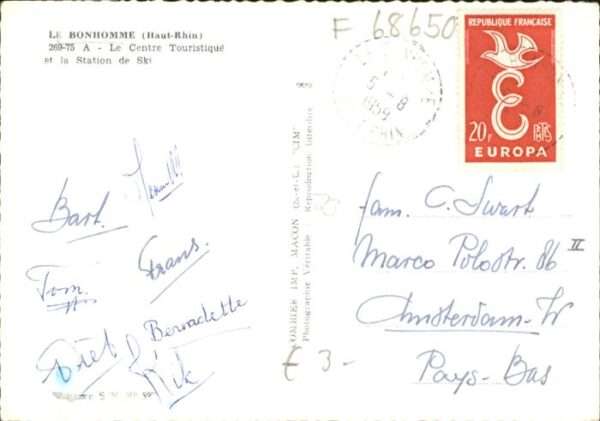 LE BONHOMME (Haut-Rhin)
269-75 A - Le Centre Touristique
et la Station de Ski
F 68650
REPUBLIQUE FRANÇAISE
20F
POSTES
EUROPA
5 - 8
1959
COMBIER IMP. MACON (S.-et-L.) "CIM"
Photographie Véritable - Reproduction Interdite
Bart.
Tom.
Frans.
Bernadette
Diet
Rik
€ 3-
fam. C. Swart
Marco Polostr. 86 II
Amsterdam-W
Pays-Bas